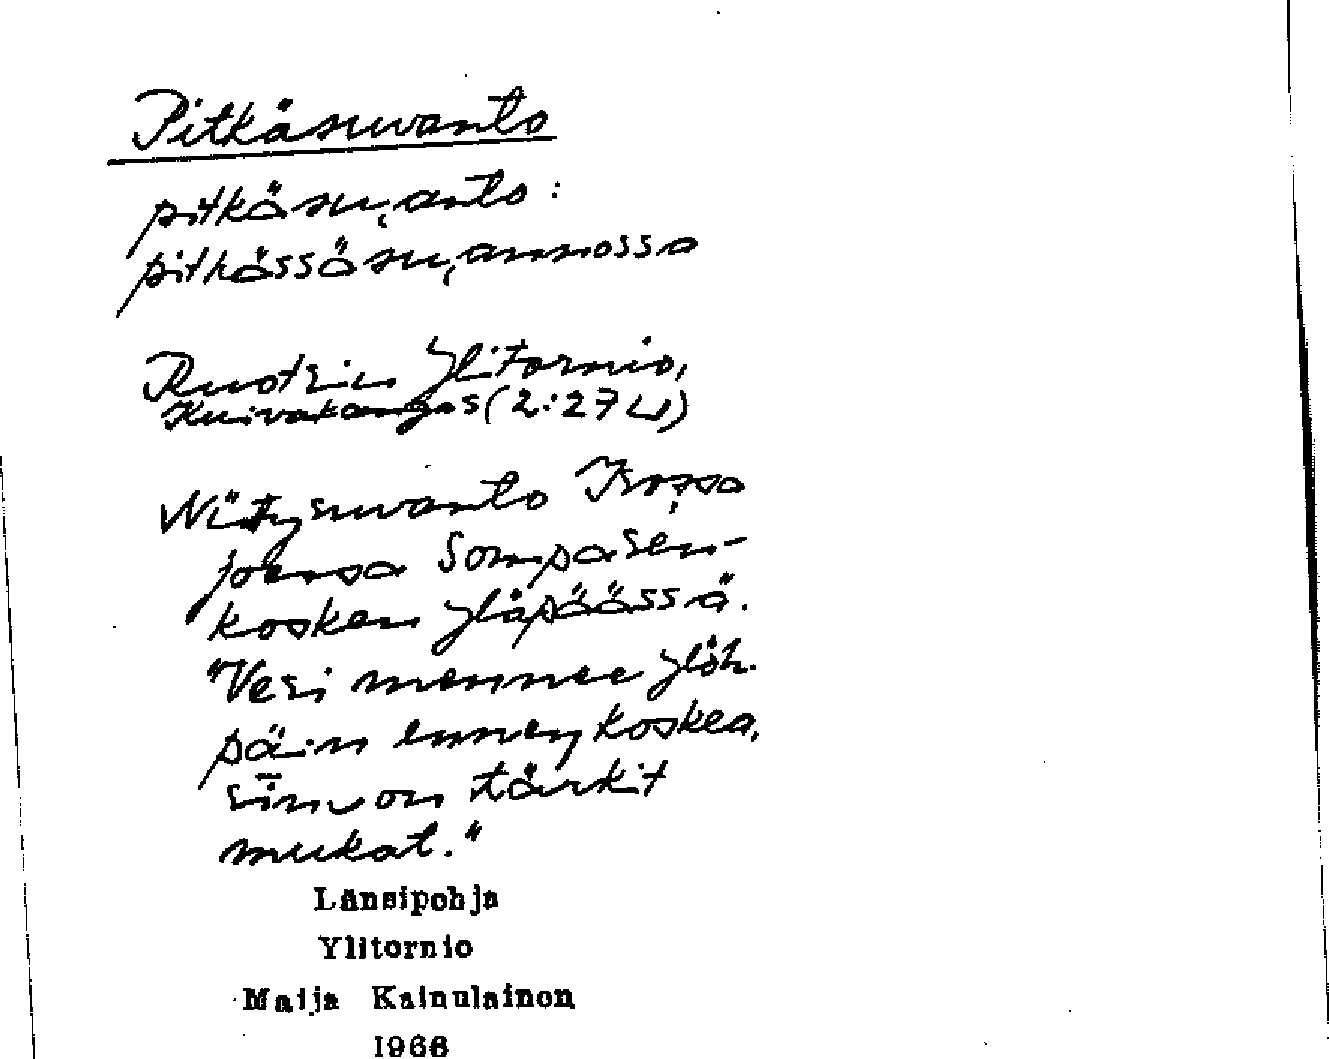 Pitkäsuvanto
pitkäsu̯anto:
pitkässäsu̯annossa
Ruotsin Ylitornio,
Kuivakangas (2:27 U)
Niitysuvanto
joensa Sompasen-
kosken yläpäässä.
"Vesi mennee ylöh.
päin enneŋ koskea,
sīnon tärkit
mukat."
Länsipohja
Ylitornio
Maija Kainulainen
1966